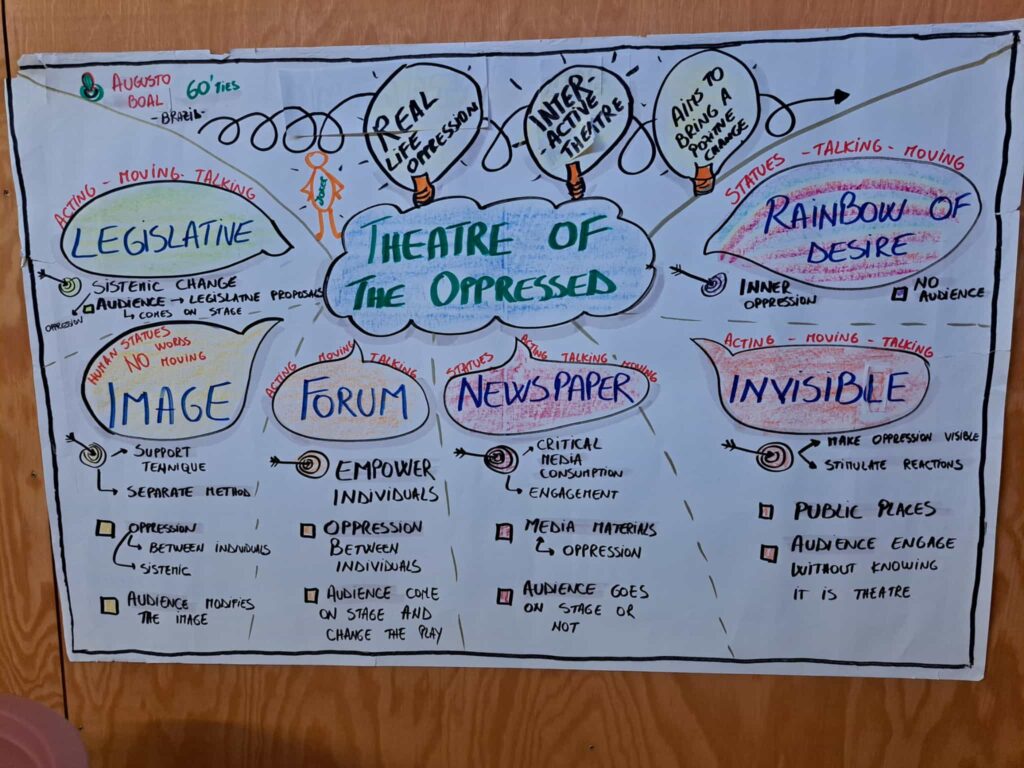 AUGUSTO
BOAL
60'TIES
- BRAZIL -
REAL
LIFE
OPPRESSION
INTER-
- ACTIVE
THEATRE
AIMS TO
BRING A
POSITIVE
CHANGE
JOKER
THEATRE OF
THE OPPRESSED
ACTING - MOVING - TALKING
LEGISLATIVE
SISTEMIC CHANGE
OPPRESSION
AUDIENCE → LEGISLATIVE PROPOSALS
↳ COMES ON STAGE
STATUES - TALKING - MOVING
RAINBOW OF
DESIRE
INNER
OPPRESSION
NO
AUDIENCE
HUMAN STATUES
NO WORDS
MOVING
IMAGE
SUPPORT
TECHNIQUE
SEPARATE METHOD
OPPRESSION
BETWEEN INDIVIDUALS
SISTEMIC
AUDIENCE MODIFIES
THE IMAGE
ACTING MOVING TALKING
FORUM
EMPOWER
INDIVIDUALS
OPPRESSION
BETWEEN
INDIVIDUALS
AUDIENCE COME
ON STAGE AND
CHANGE THE PLAY
STATUES ACTING TALKING MOVING
NEWSPAPER
CRITICAL
MEDIA
CONSUMPTION
ENGAGEMENT
MEDIA MATERIALS
OPPRESSION
AUDIENCE GOES
ON STAGE OR
NOT
ACTING - MOVING - TALKING
INVISIBLE
MAKE OPPRESSION VISIBLE
STIMULATE REACTIONS
PUBLIC PLACES
AUDIENCE ENGAGE
WITHOUT KNOWING
IT IS THEATRE